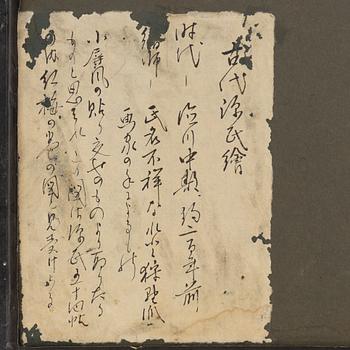 古代源氏繪
時代ー徳川中期、約二百年前
筆師ー氏名不祥なれど狩野派
画家の手になるもの
小屏風の貼り交ぜのものより取りたる
ものと思はれ この図は源氏五十四帖
の内 紅梅の巻の図と見受けらる